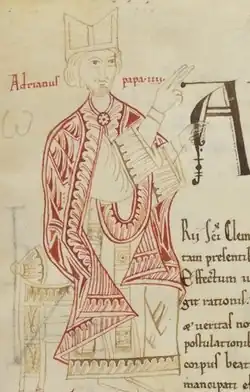 Adrianus papa·iiii·
A
Rii sci Clem
tam presentib
Effectum u
git rationis.
postulationib
corpus beat
mancipari e